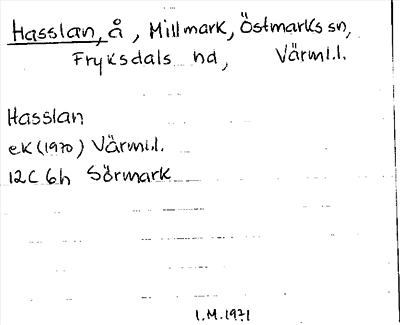 Hasslan, å, Millmark, Östmarks sn,
Fryksdals hd, Värml.l.
Hasslan
eK (1970) Värml.l.
12C 6h Sörmark
I.M.1971